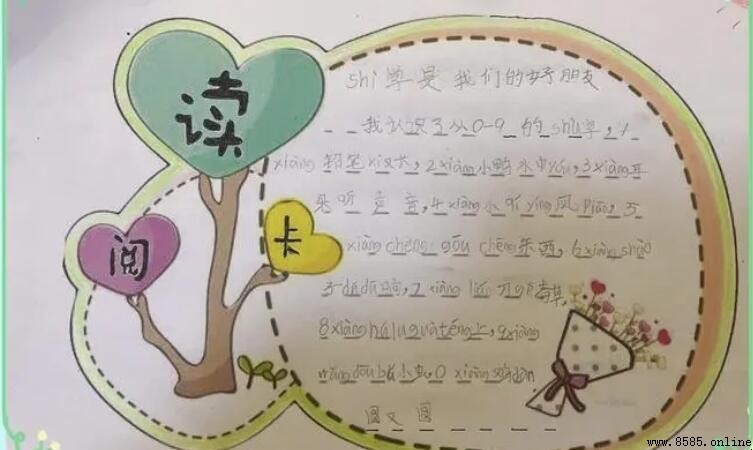 读
阅 卡
是 我们的好朋友
我认识了从0-9的shù,1
xiàng铅笔xì又长,2xiàng小鸭水中yóu,3xiàng耳
朵听 音,4xiàng小 yíng风piāo,5
xiàng chèng gōu chēng东西,6xiàng shào
子dūdū响,7xiàng 刀gē草,
8xiàng húluguàténg上,9xiàng
小虫,0 xiàng鸡dàn
圆又圆
www.8585.online